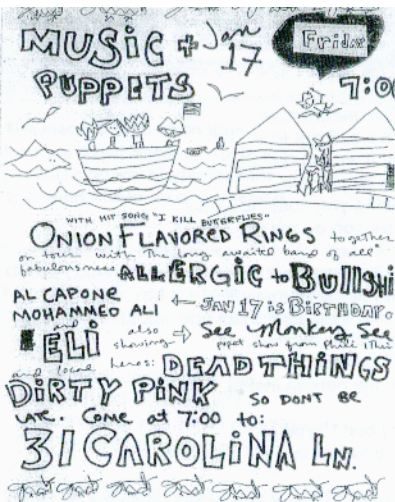 MUSIC + Jan 17 Friday
PUPPETS 7:00
WITH HIT SONG "I KILL BUTTERFLIES"
ONION FLAVORED RINGS together
on tour with the long awaited band of all
fabulousness ALLERGIC to Bullshi
AL CAPONE ← JAN 17 is BIRTHDAY
MOHAMMED ALI
and also → See Monkey See
ELI showing pupet show from phili
and local heros: DEAD THINGS
DIRTY PINK SO DONT BE
LATE. COME at 7:00 to:
31 CAROLINA LN.